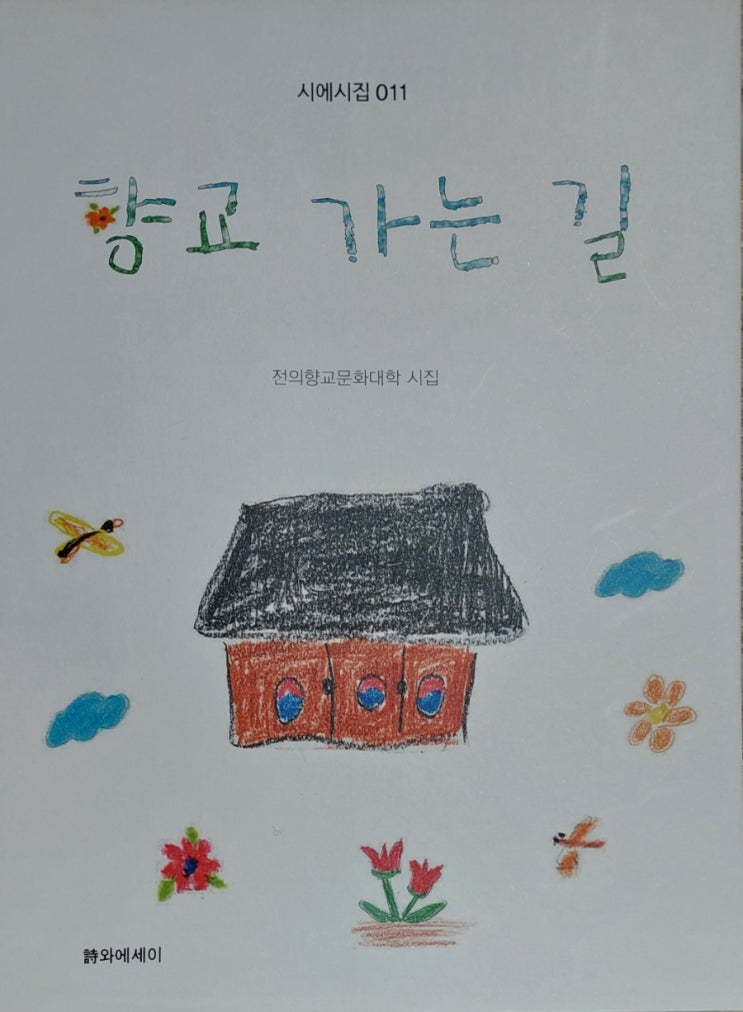 시에시집 011
향교 가는 길
전의향교문화대학 시집
詩와에세이